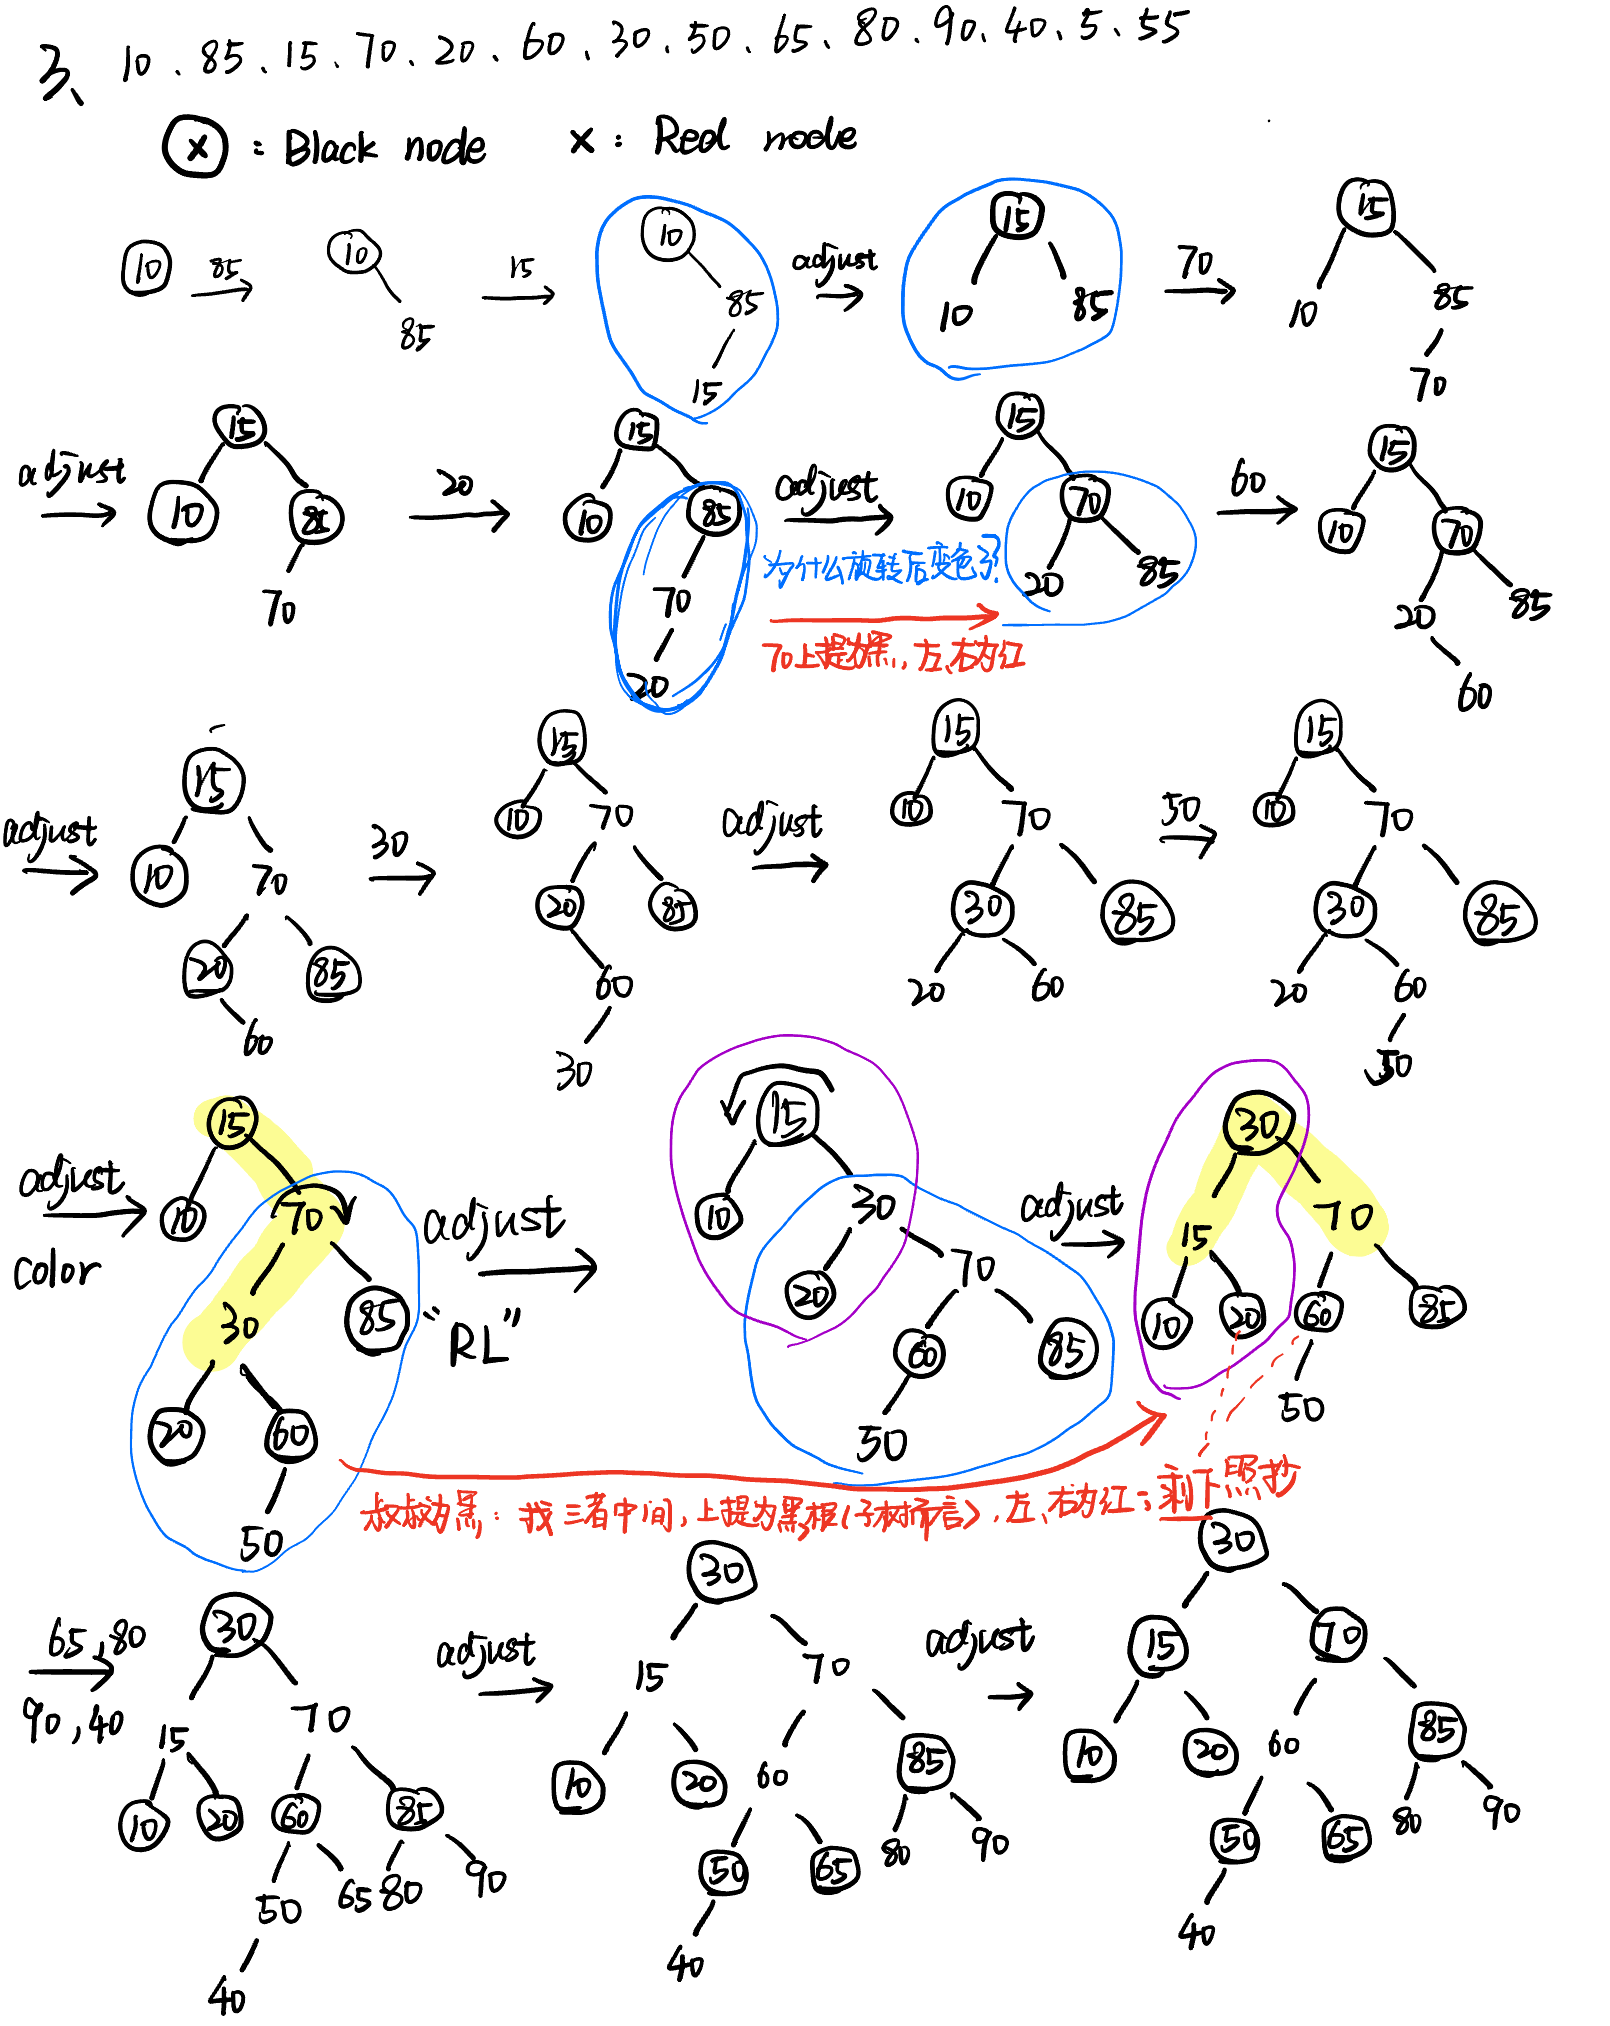 3、 10、85、15、70、20、60、30、50、65、80、90、40、5、55
x : Black node x : Red node
10 85 10 85 15 10 85 15 adjust 15 10 85 70 15 10 85 70
adjust 15 10 85 70 20 15 10 85 70 20 adjust 15 10 70 20 85 60 15 10 70 20 85 60
为什么旋转后变色了?
70上提为黑,左、右为红
adjust 15 10 70 20 85 60 30 15 10 70 20 85 60 30 adjust 15 10 70 30 85 20 60 50 15 10 70 30 85 20 60 50
adjust color 15 10 70 30 85 20 60 50 adjust "RL" 15 10 30 20 70 60 85 50 adjust 30 15 70 10 20 60 85 50
叔叔为黑: 找三者中间,上提为黑根(子树而言),左、右为红;剩下照抄
65,80 90,40 30 15 70 10 20 60 85 50 65 80 90 40 adjust 30 15 70 10 20 60 85 50 65 80 90 40 adjust 30 15 70 10 20 60 85 50 65 80 90 40